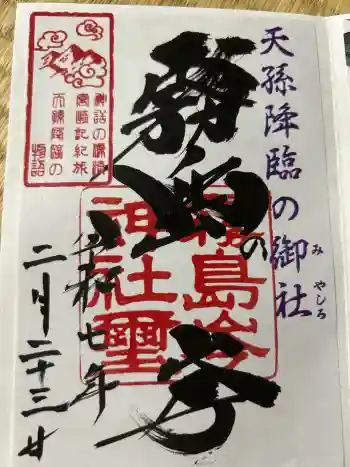 天孫降臨の御社
みやしろ
霧島の岑
霧島岑
神社璽
令和七年
二月二十三日
神話の源流
宮崎記紀旅
天孫降臨の
物語